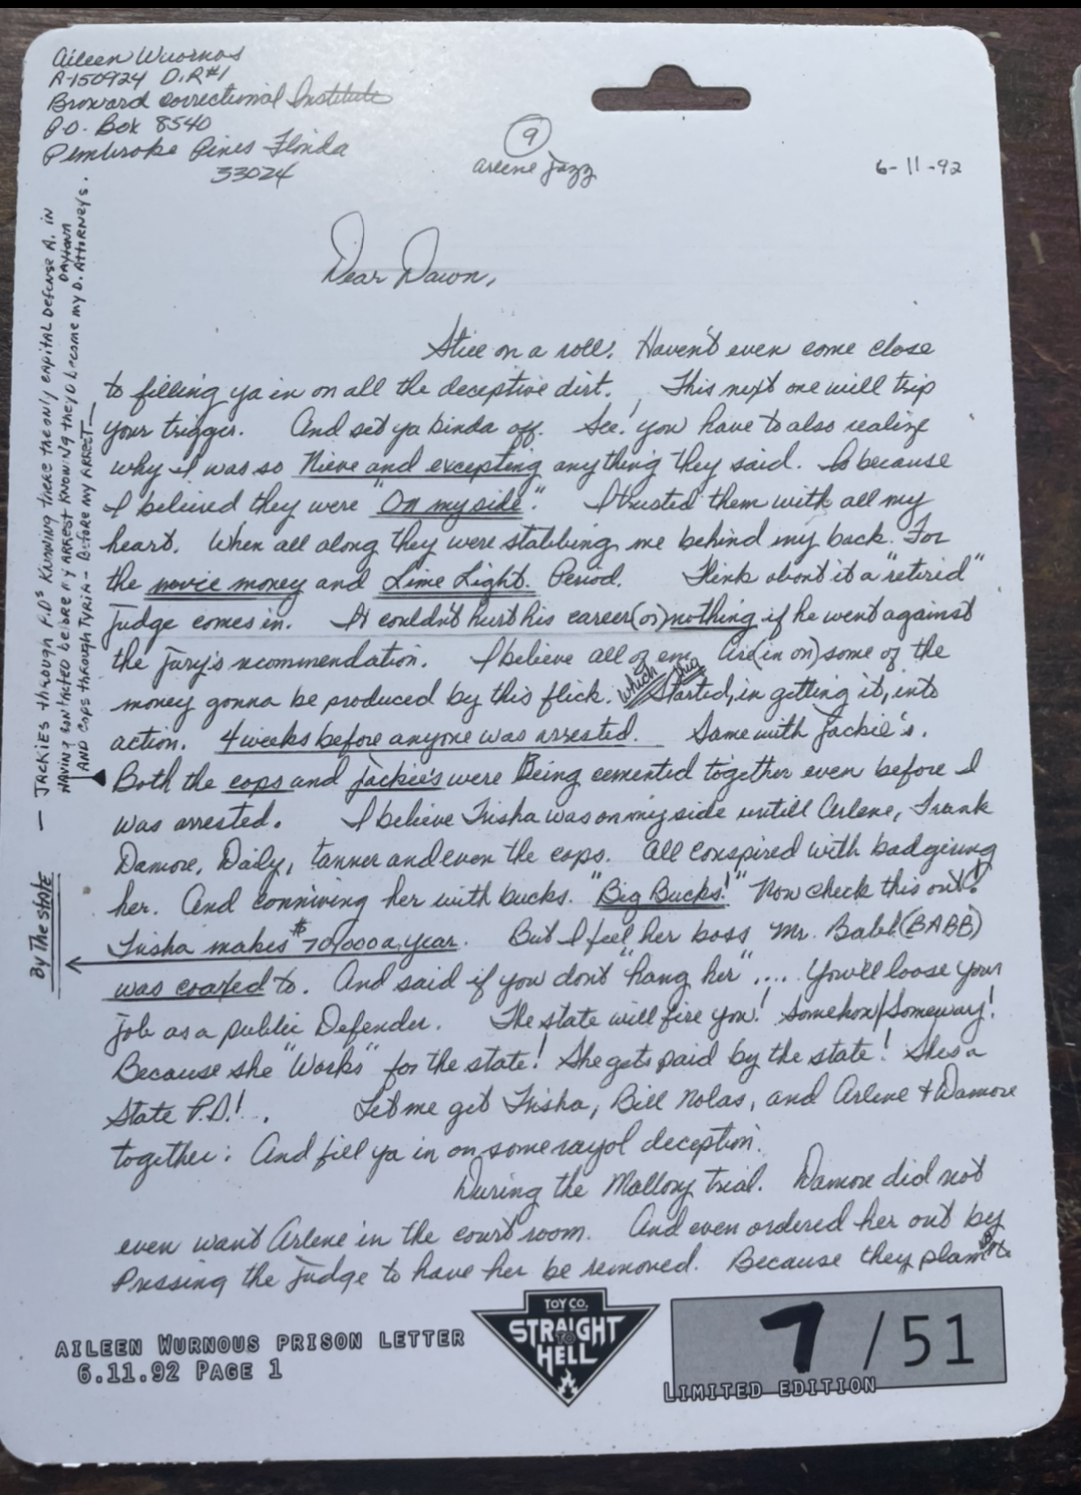 Aileen Wuornos
A-150924 D.R#1
Broward Correctional Institute
P.O. Box 8540
Pembroke Pines Florida
33024
9
arlene jazz
6-11-92
Dear Dawn,
Still on a roll! Haven't even come close
to filling ya in on all the deceptive dirt. This next one will trip
your trigger. And set ya kinda off. See! you have to also realize
why I was so Nieve and excepting anything they said. Is because
I believed they were "On my side". I trusted them with all my
heart. When all along they were stabbing me behind my back. For
the movie money and Lime Light. Period. Think about it a "retired"
Judge comes in. It couldn't hurt his career (or) nothing if he went against
the Jury's recommendation. I believe all of em Are (in on) some of the
money gonna be produced by this flick. which this started, in getting it, into
action. 4 weeks before anyone was arrested. Same with Jackie's.
Both the cops and Jackie's were Being cemented together even before I
was arrested. I believe Trisha was on my side untill Arlene, Frank
Damore, Daily, tanner and even the cops. All conspired with badgering
her. And conniving her with bucks. "Big Bucks!" Now check this out!
Trisha makes $70,000 a year. But I feel her boss Mr. Babb (BABB)
was coaxed to. And said if you don't "hang her".... You'll loose your
job as a public Defender. The state will fire you! Somehow/Someway!
Because she "Works" for the state! She gets paid by the state! Shes a
State P.D!. Let me get Trisha, Bill Nolas, and Arlene + Damore
together: And fill ya in on some rayol deception.
During the Mallory trial. Damore did not
even want Arlene in the court room. And even ordered her out by
Pressing the Judge to have her be removed. Because they
— JACKIES through P.D's KNOWING there the only CAPITAL DEFENSE A. in DAYTONA
HAVING CONTACTED before MY ARREST KNOWING they'd become my D. ATTORNEYS.
AND COPS through TYRIA - Before MY ARREST —
By The state
AILEEN WURNOUS PRISON LETTER
6.11.92 PAGE 1
TOY CO.
STRAIGHT
TO
HELL
7/51
LIMITED EDITION